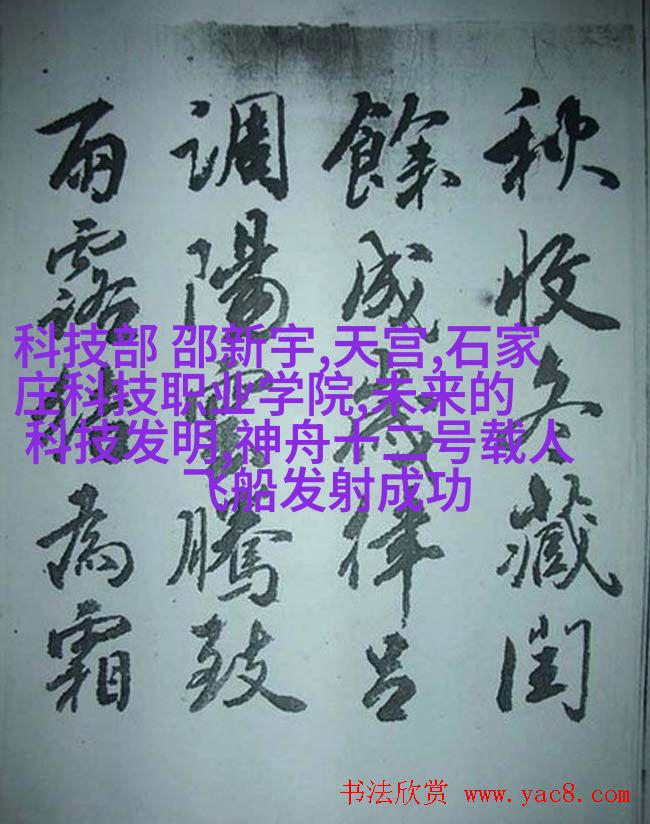 秋收冬藏閏
餘成歲律呂
調陽雲騰致
雨露結為霜
科技部 邵新宇,天宫,石家
庄科技职业学院,未来的
科技发明,神舟十二号载人
飞船发射成功
书法欣赏 www.yac8.com